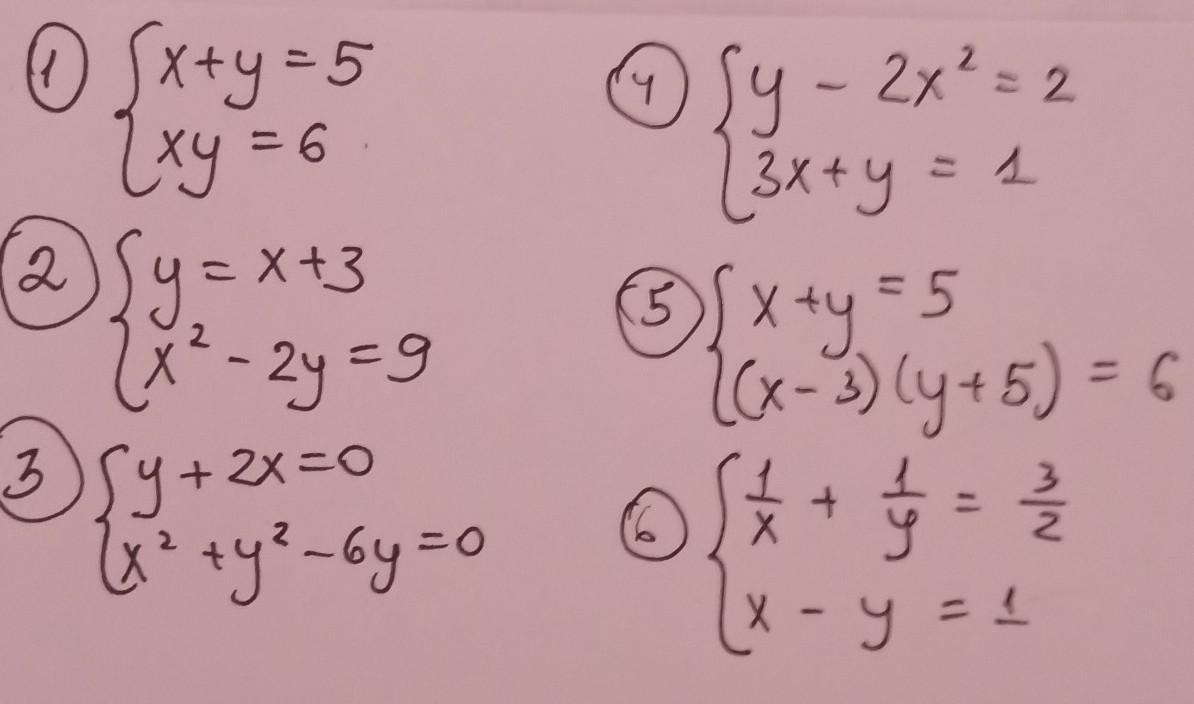 ① { x + y = 5
xy = 6
② { y = x + 3
x² - 2y = 9
③ { y + 2x = 0
x² + y² - 6y = 0
④ { y - 2x² = 2
3x + y = 1
⑤ { x + y = 5
(x - 3)(y + 5) = 6
⑥ { 1/x + 1/y = 3/2
x - y = 1